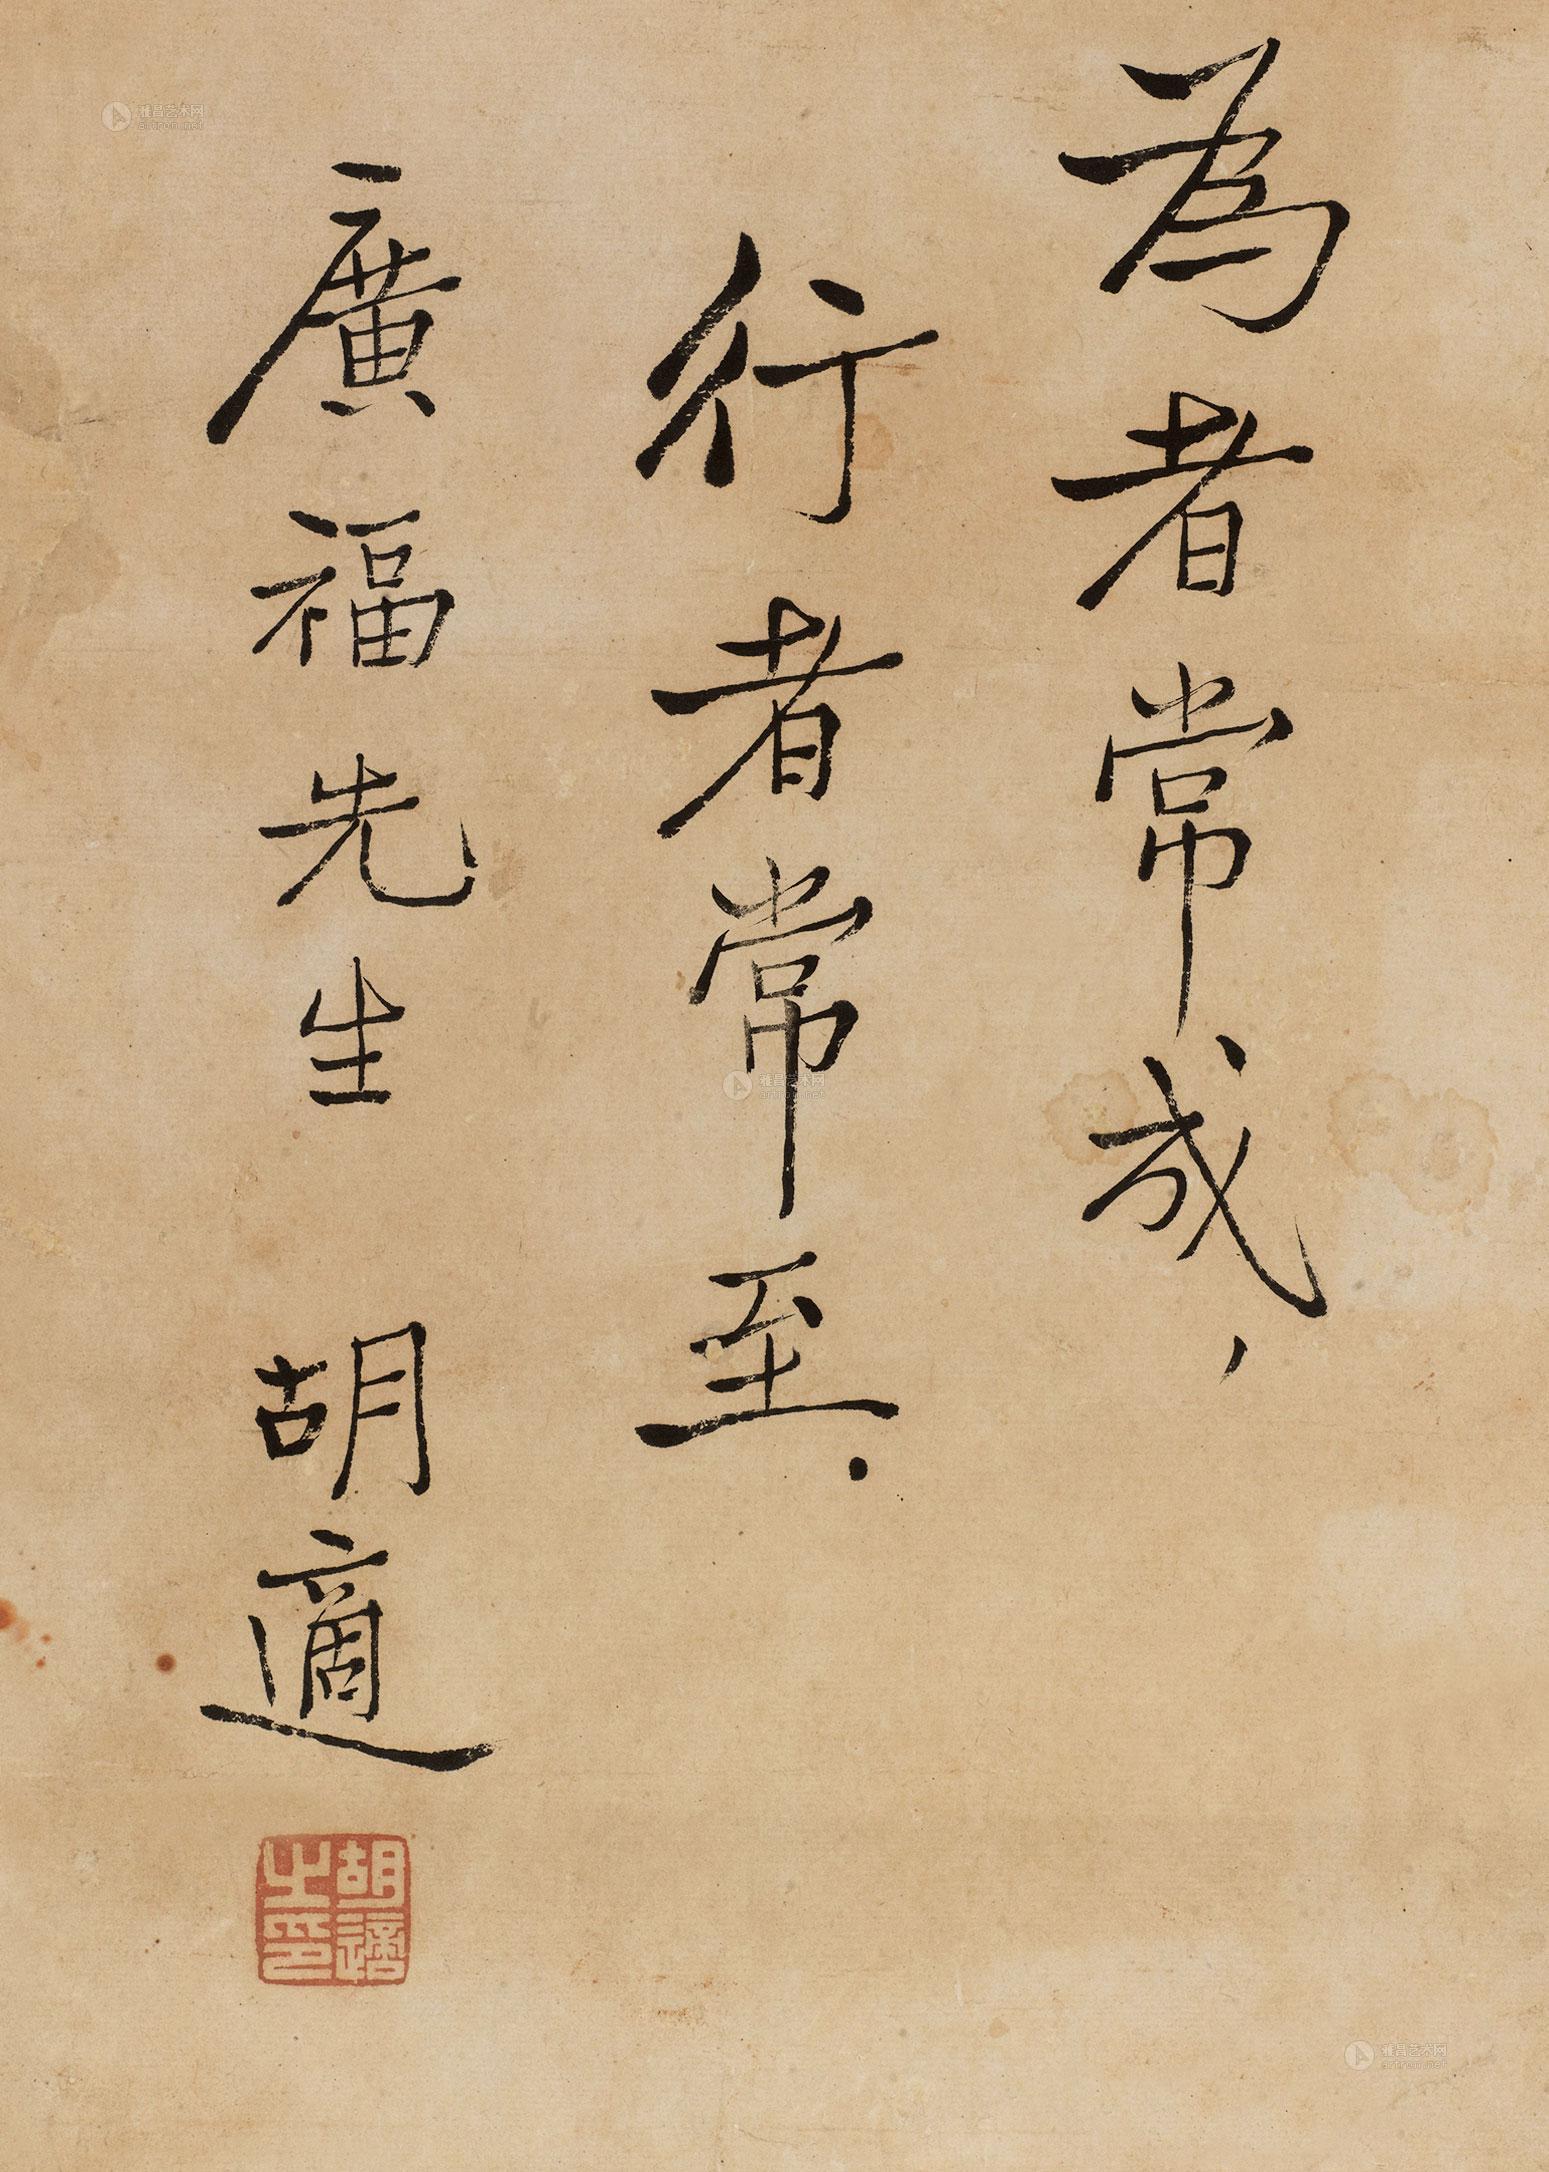 為者常成，
行者常至．
廣福先生 胡適
胡適之印
雅昌艺术网
artron.net
雅昌艺术网
artron.net
雅昌艺术网
artron.net